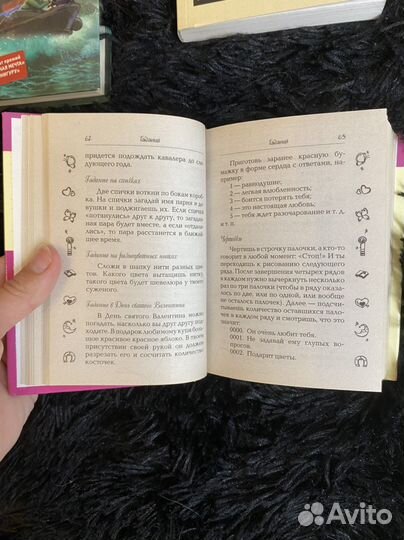 ит премий
НАЯ МЕЧТА»
НИГУРУ»
62
Гадания
придется подождать кавалера до сле-
дующего года.
Гадание на спичках
Две спички воткни по бокам короб-
ка. На спичках загадай имя парня и де-
вушки и поджигаешь их. Если спички
«потянулись» друг к другу, то загадан-
ная пара будет вместе, а если «отпали-
лись», то пара расстанется в ближай-
шее время.
Гадание на разноцветных нитках
Сложи в шапку нити разных цветов.
Какого цвета вытащишь нить,
такого цвета будет шевелюра у твоего
суженого.
Гадание в День святого Валентина
В День святого Валентина можно
погадать, насколько вы друг другу подхо-
дите. В подарок любимому купи боль-
шое красивое красное яблоко. В твоем
присутствии своей рукой он должен
разрезать его и сосчитать количество
косточек.
Гадания
63
Приготовь заранее красную бу-
мажку в форме сердца с ответами, на-
пример:
1 — равнодушие;
2 — легкая влюбленность;
3 — боится потерять тебя;
4 — это настоящая любовь;
5 — тебя ждет разочарование и т. д.
и т. п.
Чертим
Чертишь в строчку палочки, а кто-то
говорит в любой момент: «Стоп!» И ты
переходишь к рисованию следующего
ряда. После завершения четырех рядов
в каждом нужно вычеркнуть несколько
из этих палочек (чтобы в ряду осталось
или две, или по одной, или вообще
не осталось палочек). Дальше — под-
считываешь количество оставшихся
палочек в каждом ряду и смотришь, что
это значит.
0000. Он очень любит тебя.
0001. Не задавай ему глупых во-
просов.
0002. Подарит цветы.
Avito